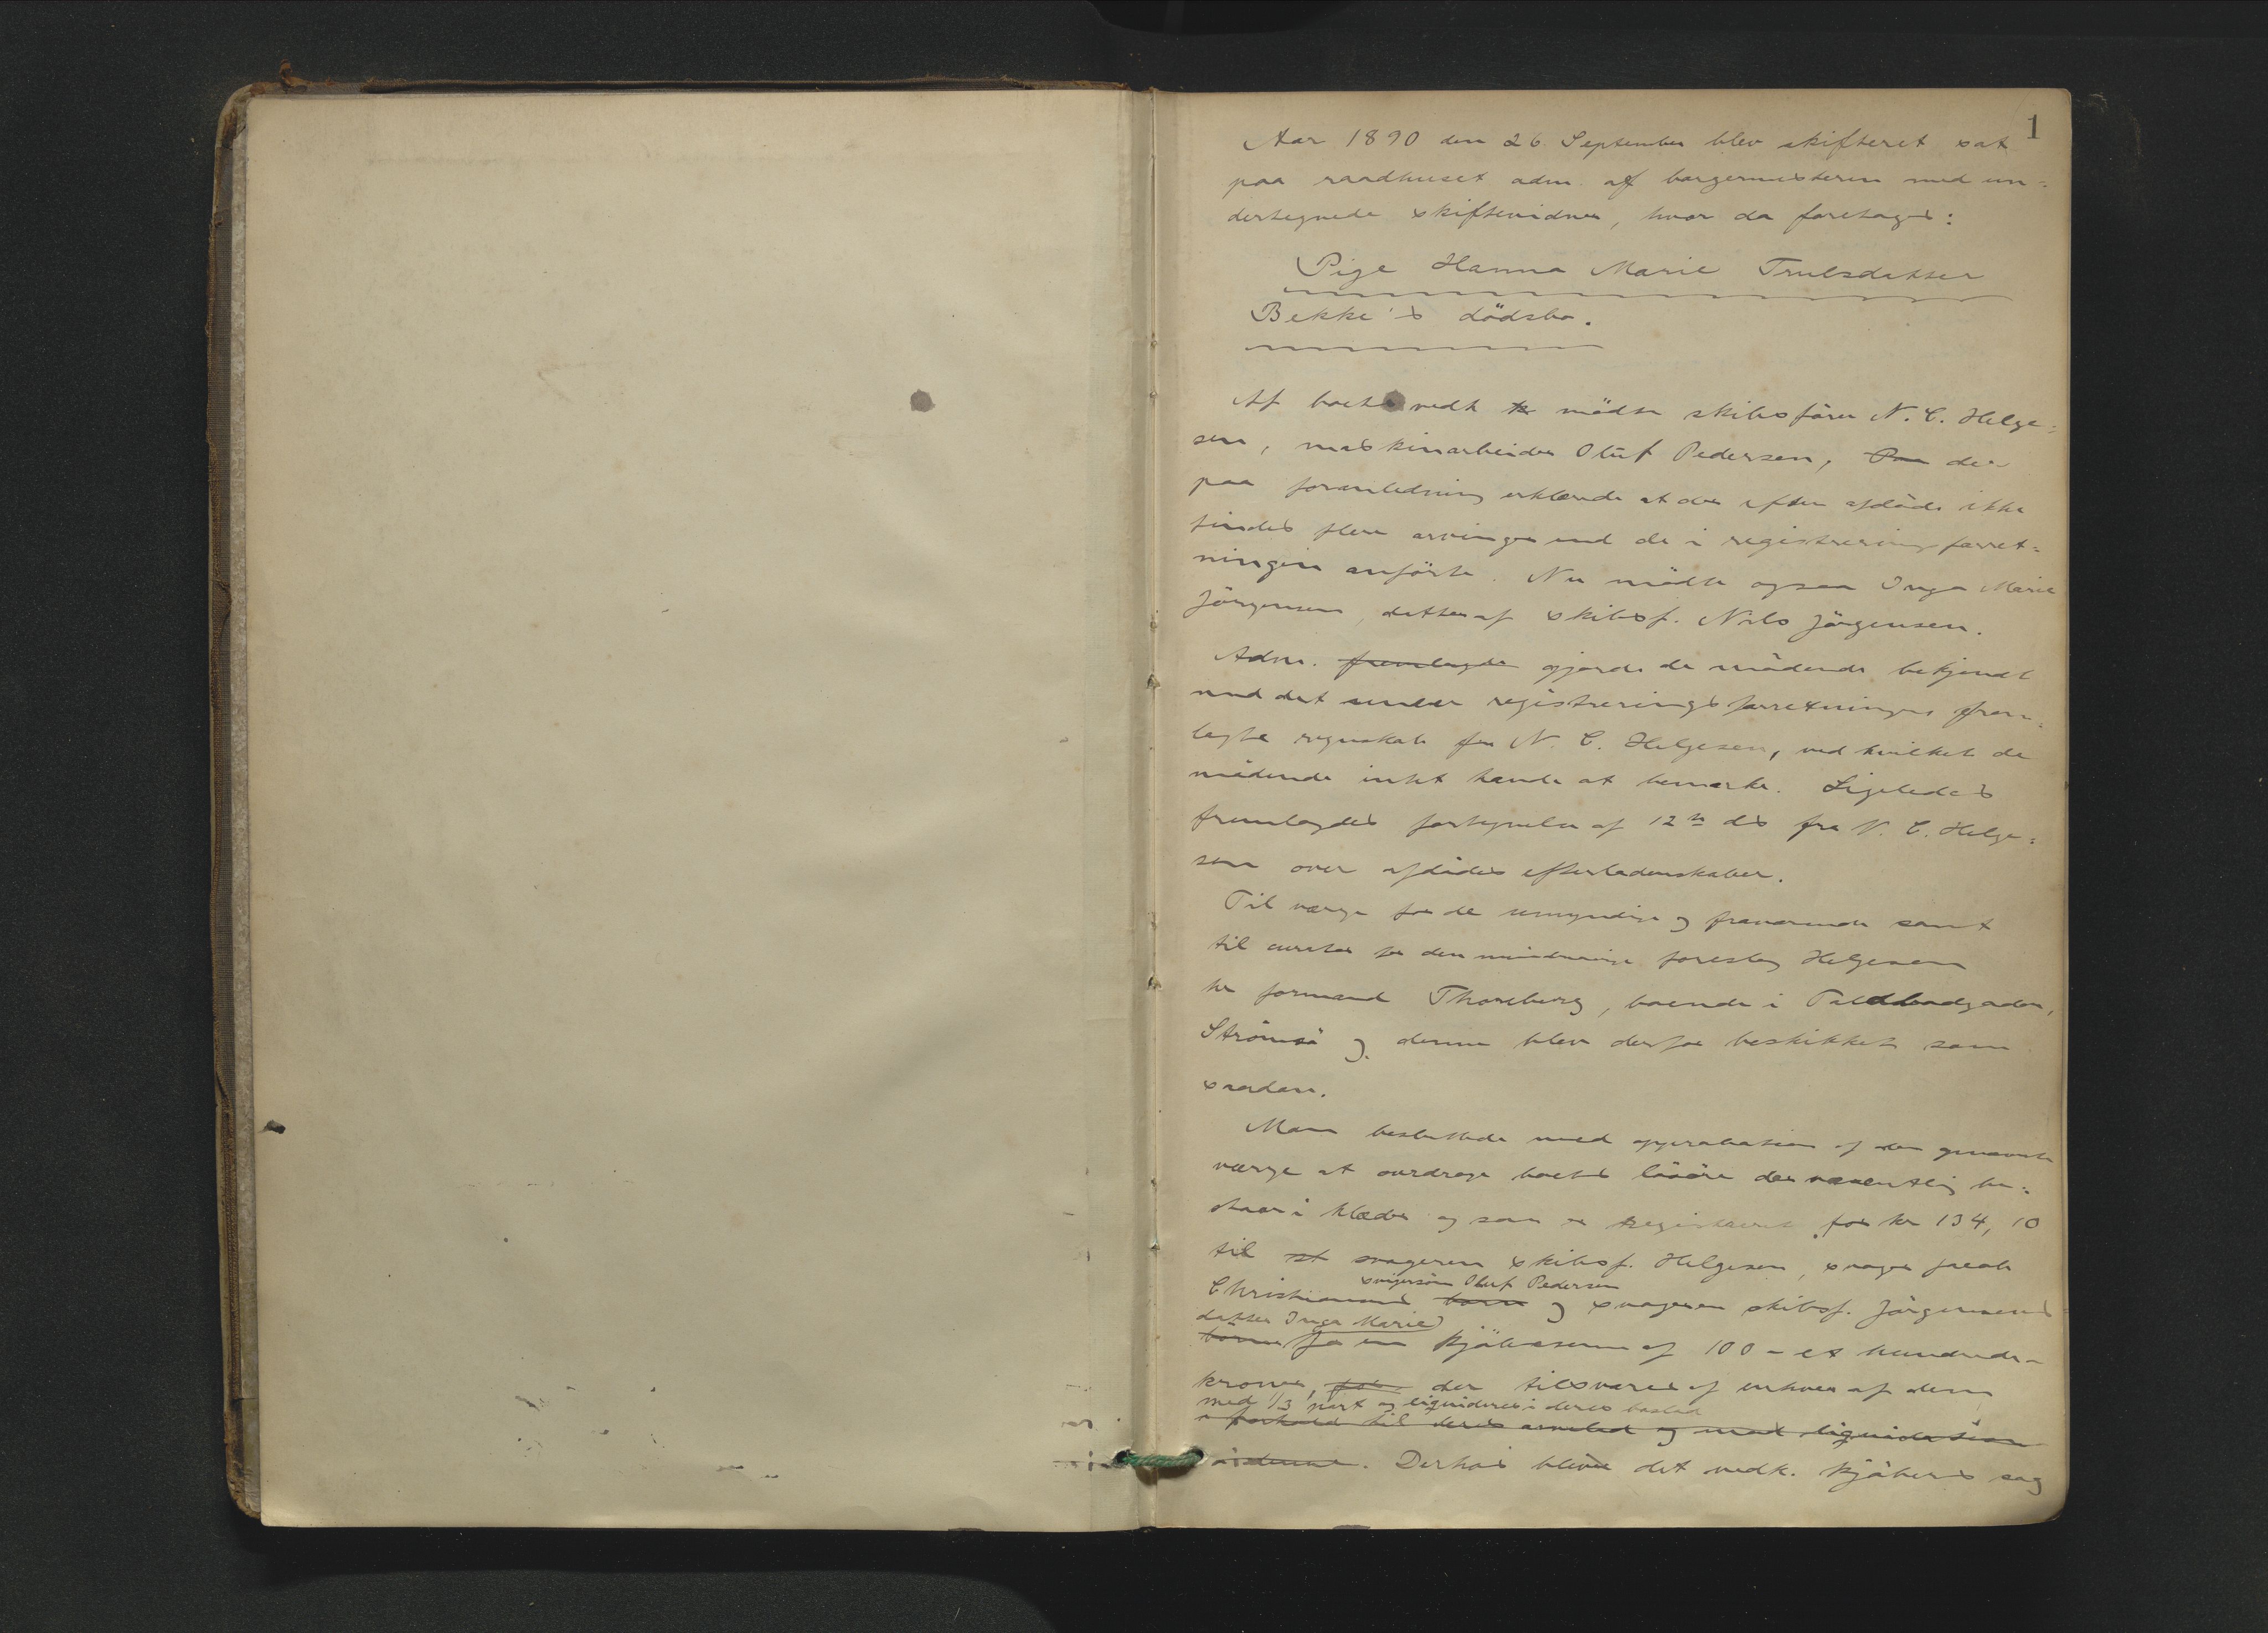 1
Aar 1890 den 26 September blev skifteret sat
paa raadhuset adm. af borgermesteren med un=
dertegnede skiftevidner, hvor da foretoges:
Pige Hanna Marie Trulsdatter
Bekke's dödsbo.
Af boets vedk mödte skibsförer N. C. Helge=
sen, maskinarbeider Oluf Pedersen, Paa der
paa foranledning erklærede at der efter afdöde ikke
findes flere arvinger end de i registreringsforret=
ningen anförte. Nu mödte ogsaa Inga Marie
Jörgensen, datter af skibsf. Nils Jörgensen.
Adm. fremlagde gjorde de mödende bekjendt
med det under registreringsforretningen frem=
lagte regnskab fra N. C. Helgesen, ved hvilket de
mödende intet havde at bemærke. Ligeledes
fremlagdes fortegnelse af 12te ds fra N. C. Helge=
sen over afdödes efterladenskaber.
Til værge for de umyndige og fraværende samt
til curator for den mindreaarige foreslog Helgesen
hr formand Thoreberg, boende i Toldbodgaden,
Strömsö og denne blev derfor beskikket som
saadan.
Man besluttede med approbation af den opnævnte
værge at overdrage boets lösöre der væsentlig be=
staar i klæder og som er registreret for kr 134,10
til st svogeren skibsf. Helgesen, svoger Jacob
svigersön Oluf Pedersen
Christiansens börn og svogeren skibsf. Jörgensens
datter Inga Marie
börn for en kjöbesum af 100 - et hundrede -
kroner, for der tilsvares af enhver af dem
med 1/3 part og liquideres i deres boslod
i forhold til deres arvelod og med liquidation
i denne. Derhos blev det vedk. kjöbers sag